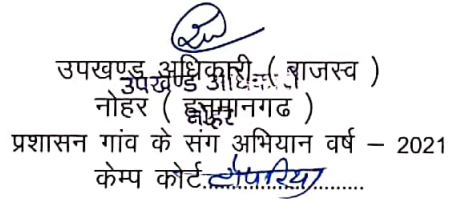 उपखण्ड अधिकारी ( राजस्व )
उपखण्ड अधिकारी
नोहर ( हनुमानगढ )
नोहर
प्रशासन गांव के संग अभियान वर्ष – 2021
केम्प कोर्ट टोपरिया